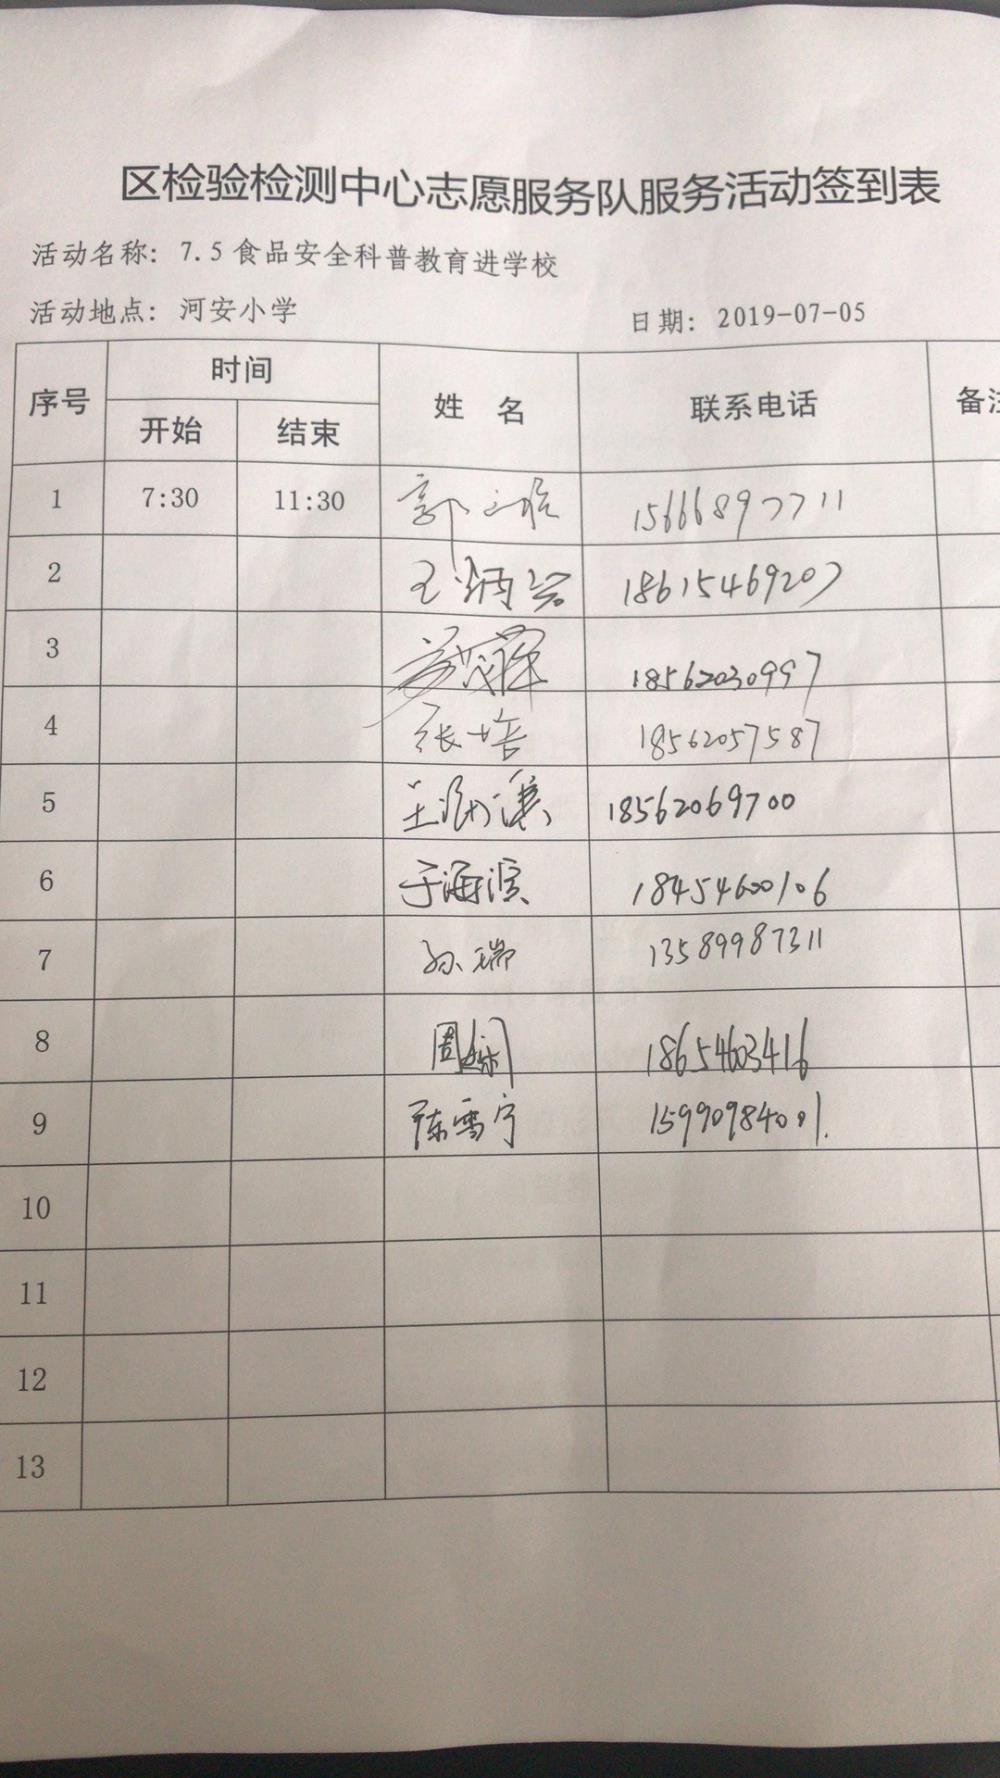 区检验检测中心志愿服务队服务活动签到表
活动名称：7.5食品安全科普教育进学校
活动地点：河安小学 日期：2019-07-05
序号 时间 姓 名 联系电话 备注
开始 结束
1 7:30 11:30 郭 15666897711
2 王炳 18615469207
3 18562030997
4 张培 18562057587
5 王 18562069700
6 于海滨 18454600106
7 孙瑞 13589987311
8 周 18654603416
9 陈雪宁 15990984001.
10
11
12
13